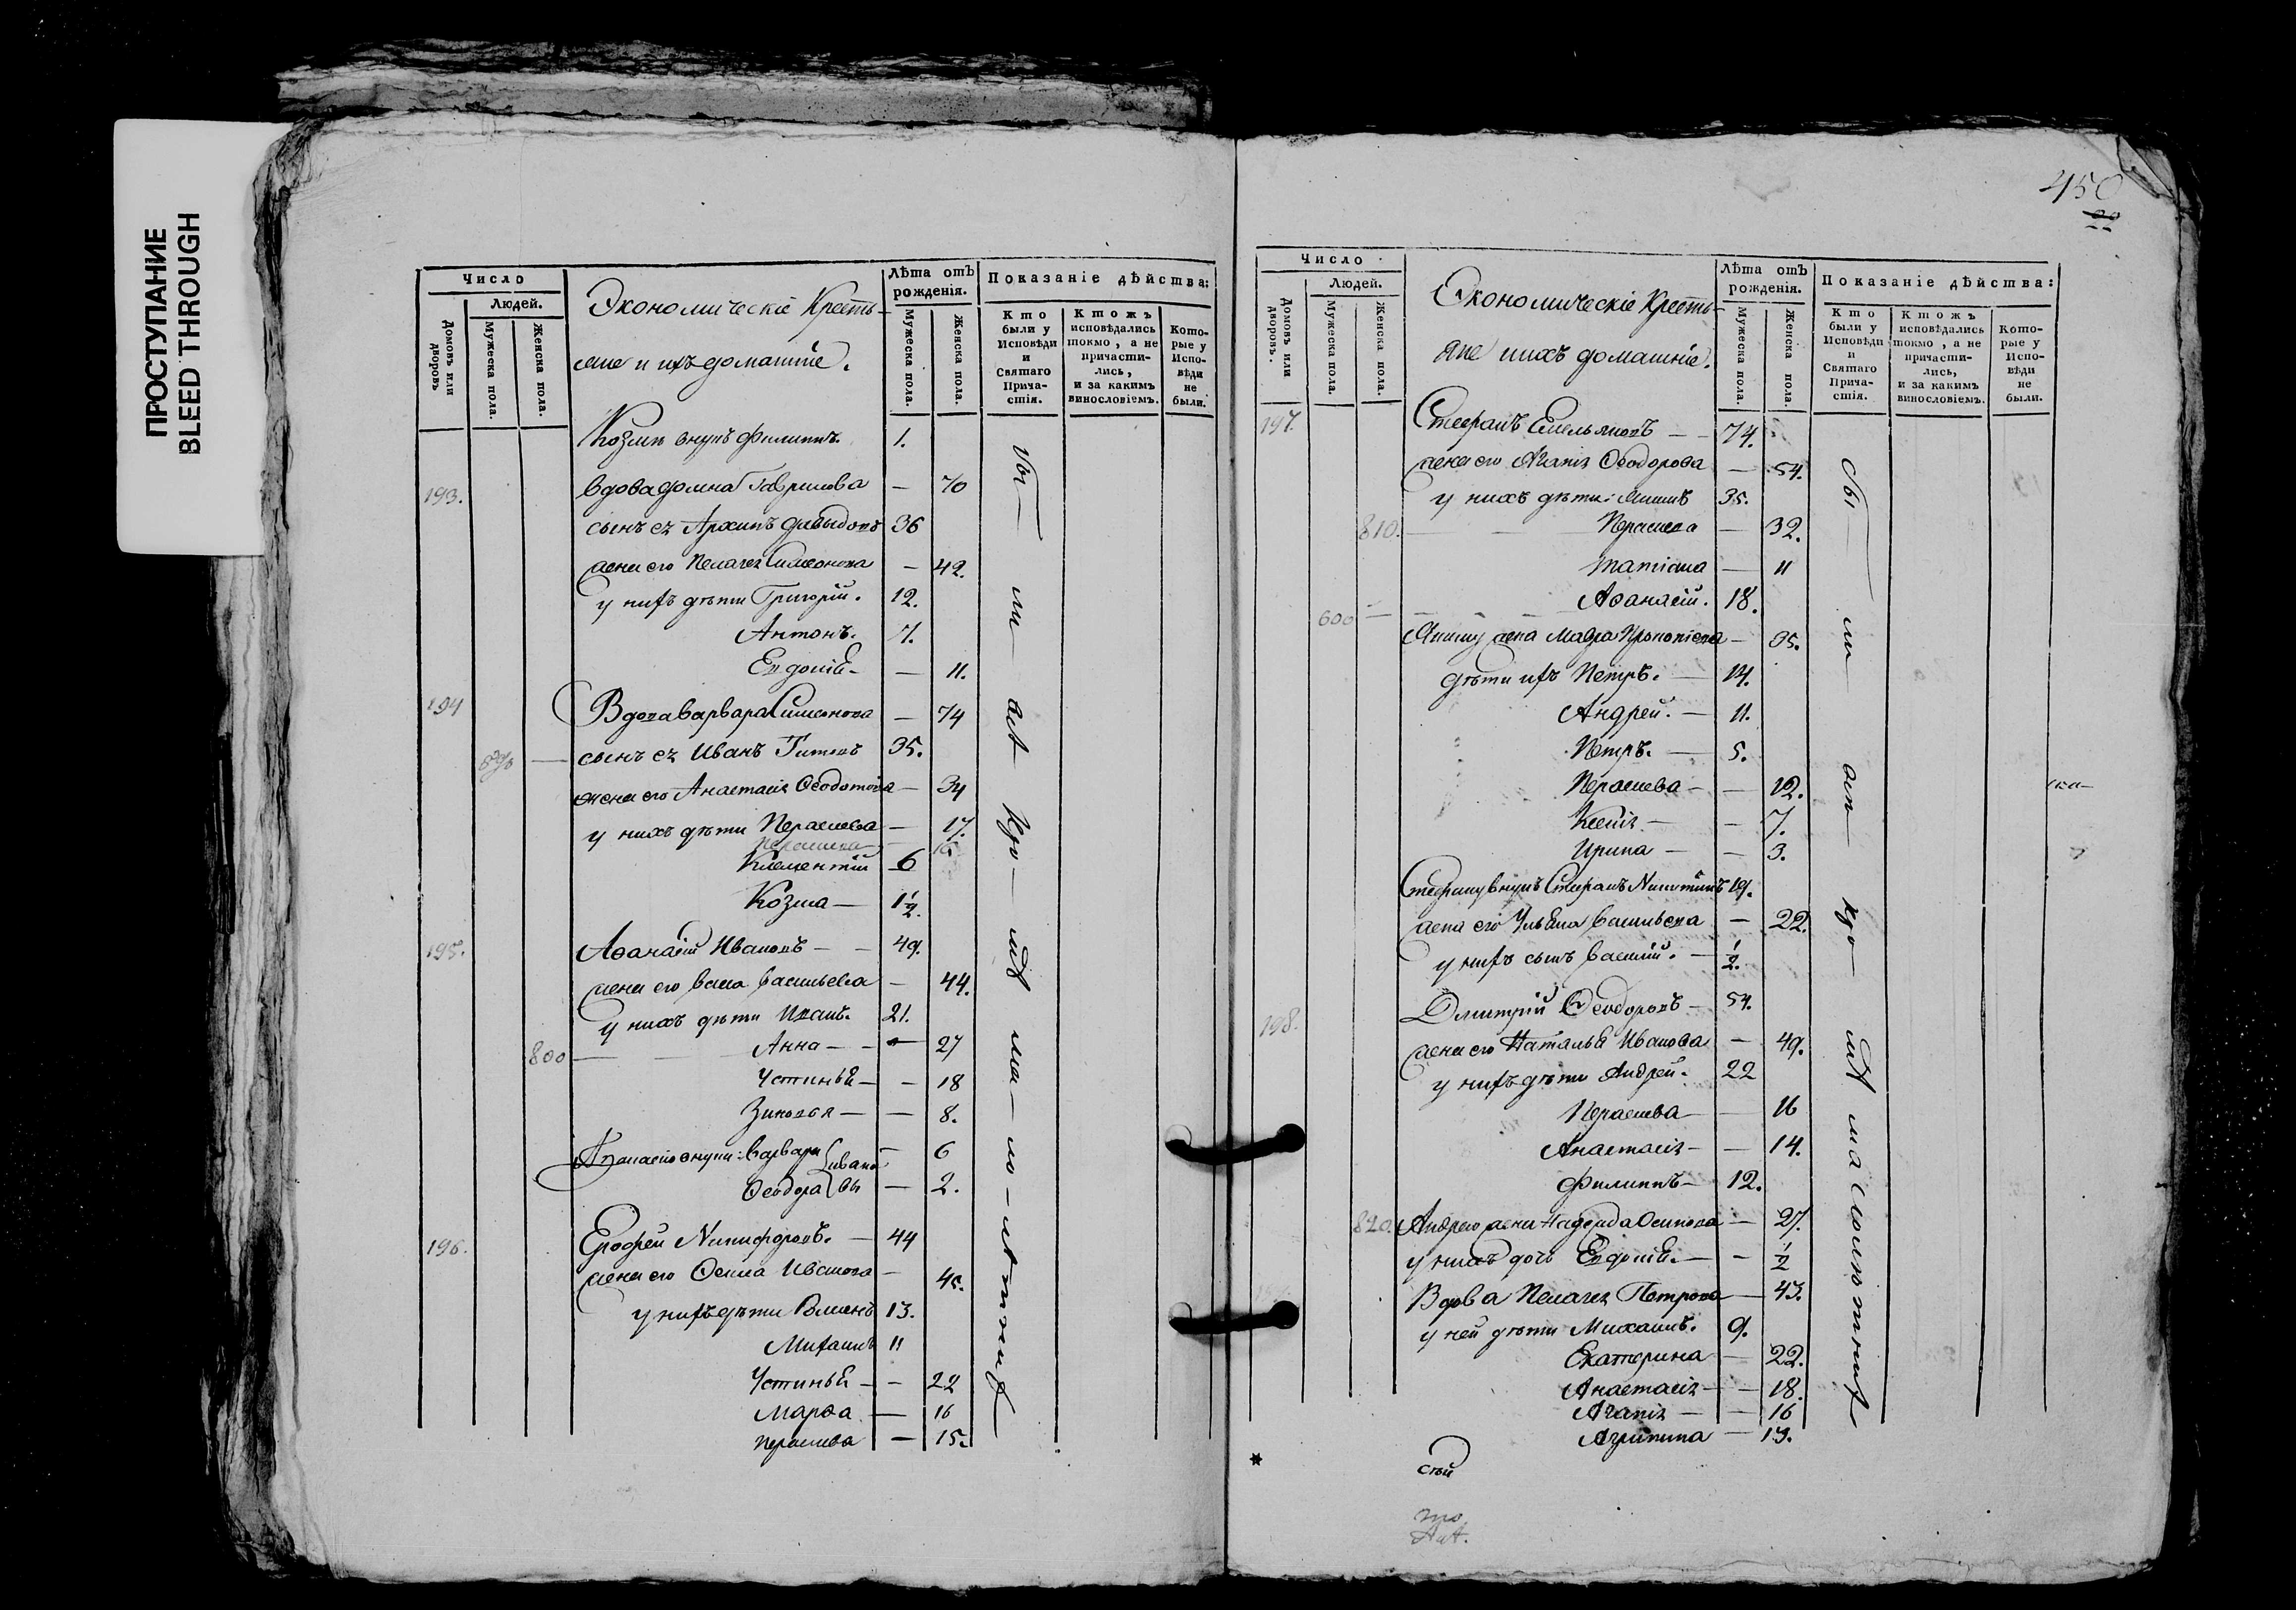 ПРОСТУПАНИЕ
BLEED THROUGH
Число
Людей.
Домовъ или дворовъ
Мужеска пола.
Женска пола.
Экономическіе Кресть-
яне и ихъ домашніе.
Лѣта отъ
рожденія.
Мужеска пола.
Женска пола.
Показаніе дѣйства:
Кто
были у
Исповѣди
и
Святаго
Прича-
стія.
Ктожъ
исповѣдались
токмо, а не
причасти-
лись,
и за какимъ
винословіемъ.
Кото-
рые у
Испо-
вѣди
не
были.
Козмы внукъ Филиппъ 1.
193. Вдова Домна Гаврилова — 70
сынъ ея Архипъ Давыдовъ 36
жена его Пелагея Симеонова — 42.
у нихъ дѣти Григорій. 12.
Антонъ. 7.
Евдокія — 11.
194 Вдова Варвара Симеонова — 74
сынъ ея Иванъ Титовъ 35.
жена его Анастасія Ѳеодотова — 34
у нихъ дѣти Парасковья — 17.
Климентій 6
Козма — 1½.
195. Аѳанасій Ивановъ — 49.
жена его Васса Васильева — 44.
у нихъ дѣти Иванъ. 21.
800 — Анна — 27
Устинья — 18
Зиновья — 8.
Аѳанасію внуки: Варвара Ивано- 6
Ѳеодора вы — 2.
196. Ерофей Никифоровъ. — 44
жена его Ѳекла Иванова — 45.
у нихъ дѣти Романъ 13.
Михаилъ 11
Устинья — 22
Марѳа — 16
Парасковья — 15.
450
Число
Людей.
Домовъ или дворовъ.
Мужеска пола.
Женска пола.
Экономическіе Кресть-
яне и ихъ домашніе.
Лѣта отъ
рожденія.
Мужеска пола.
Женска пола.
Показаніе дѣйства:
Кто
были у
Исповѣди
и
Святаго
Прича-
стія.
Ктожъ
исповѣдались
токмо, а не
причасти-
лись,
и за какимъ
винословіемъ.
Кото-
рые у
Испо-
вѣди
не
были.
197. Стефанъ Емельяновъ — 74.
жена его Агапія Ѳеодорова — 54.
у нихъ дѣти: 35.
810. — — 32.
Татіана — 11
600 — Аѳанасій. 18.
жена Мавра Прокопіева — 35.
дѣти ихъ Петръ. — 14.
Андрей. — 11.
Петръ. — 5.
— 12.
Ксенія — 7.
Ирина — 3.
Стефану внукъ Стефанъ Никитинъ 19.
жена его Ульяна Васильева — 22.
у нихъ сынъ Василій. — ½.
198. Дмитрій Ѳеодоровъ — 54.
жена его Наталья Иванова — 49.
у нихъ дѣти Андрей. 22
— 16
Анастасія — 14.
Филиппъ — 12.
820. Андрею жена Надежда Осипова — 27.
у нихъ дочь Евдокія. — ½
Вдова Пелагея Петрова — 43.
у ней дѣти Михаилъ. 9.
Екатерина — 22.
Анастасія — 18.
Агапія — 16
Агрипина — 13.
*